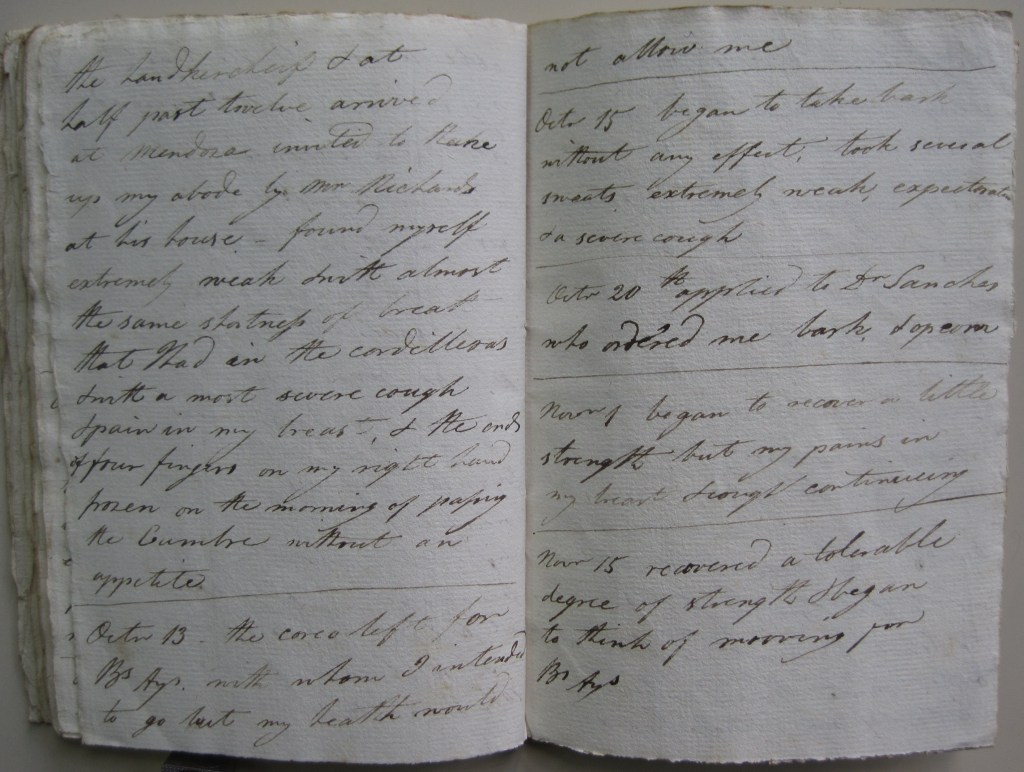 the handkercheif & at
half past twelve arrived
at Mendoza invited to take
up my abode by Mr Richards
at his house - found myself
extremely weak & with almost
the same shortness of breath
that I had in the cordilleras
& with a most severe cough
& pain in my breast, & the ends
of four fingers on my right hand
frozen on the morning of passing
the Cumbre without an
appetite
Octr 13 - the coreo left for
Bs Ays. with whom I intended
to go but my health would
not allow me
Octr 15 began to take bark
without any effect, took several
sweats extremely weak, expectorate
& a severe cough
Octr 20th applied to Dr Sanches
who ordered me bark, & opeom
Novr 1 began to recover a little
strength but my pains in
my breast & cough continueing
Novr 15 recovered a tolerable
degree of strength & began
to think of mooving for
Bs Ays